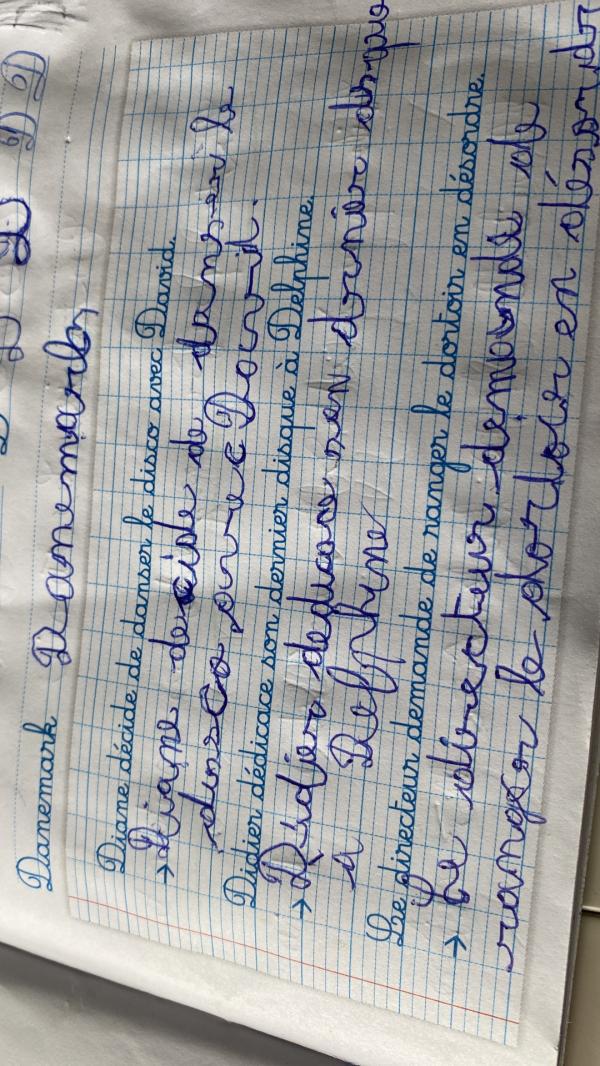 D D D D
Danemark Danemark
Diane décide de danser le disco avec David.
→ Diane decide de danser le
disco avec David.
Didier dédicace son dernier disque à Delphine.
→ Didier dedicace son dernier disque
a Delphine
Le directeur demande de ranger le dortoir en désordre.
→ Le directeur demande de
ranger le dortoir en désordr